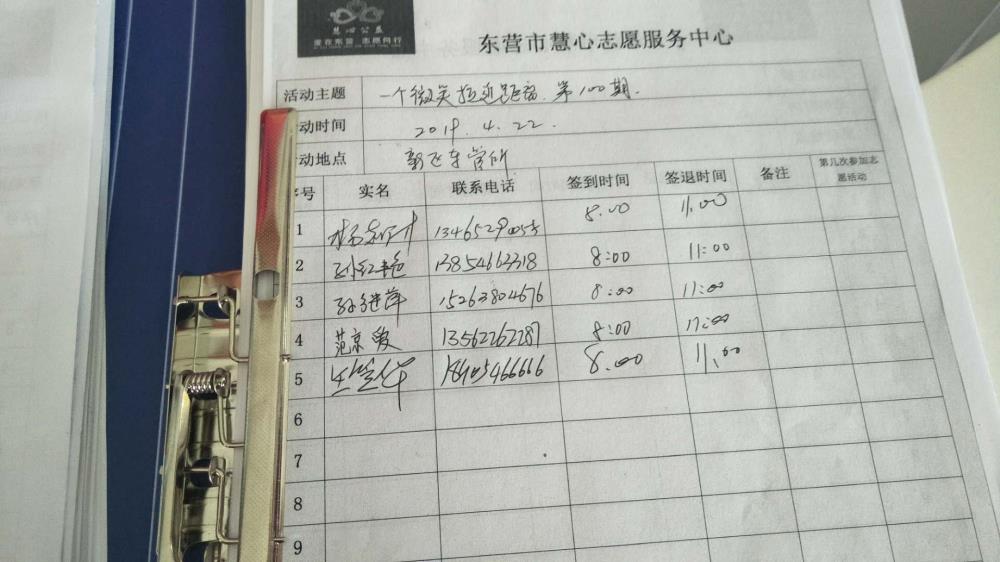 慧心公益
爱在东营 志愿同行
东营市慧心志愿服务中心
活动主题 一个微笑拉近距离.第100期.
动时间 2019.4.22.
动地点 车管所
序号 实名 联系电话 签到时间 签退时间 备注 第几次参加志愿活动
1 8.00 11.00
2 孙红艳 13854663318 8:00 11:00
3 孙继萍 15263804676 8:00 11:00
4 范京爱 13562262287 8:00 11:00
5 18905466616 8.00 11.00
6
7
8
9